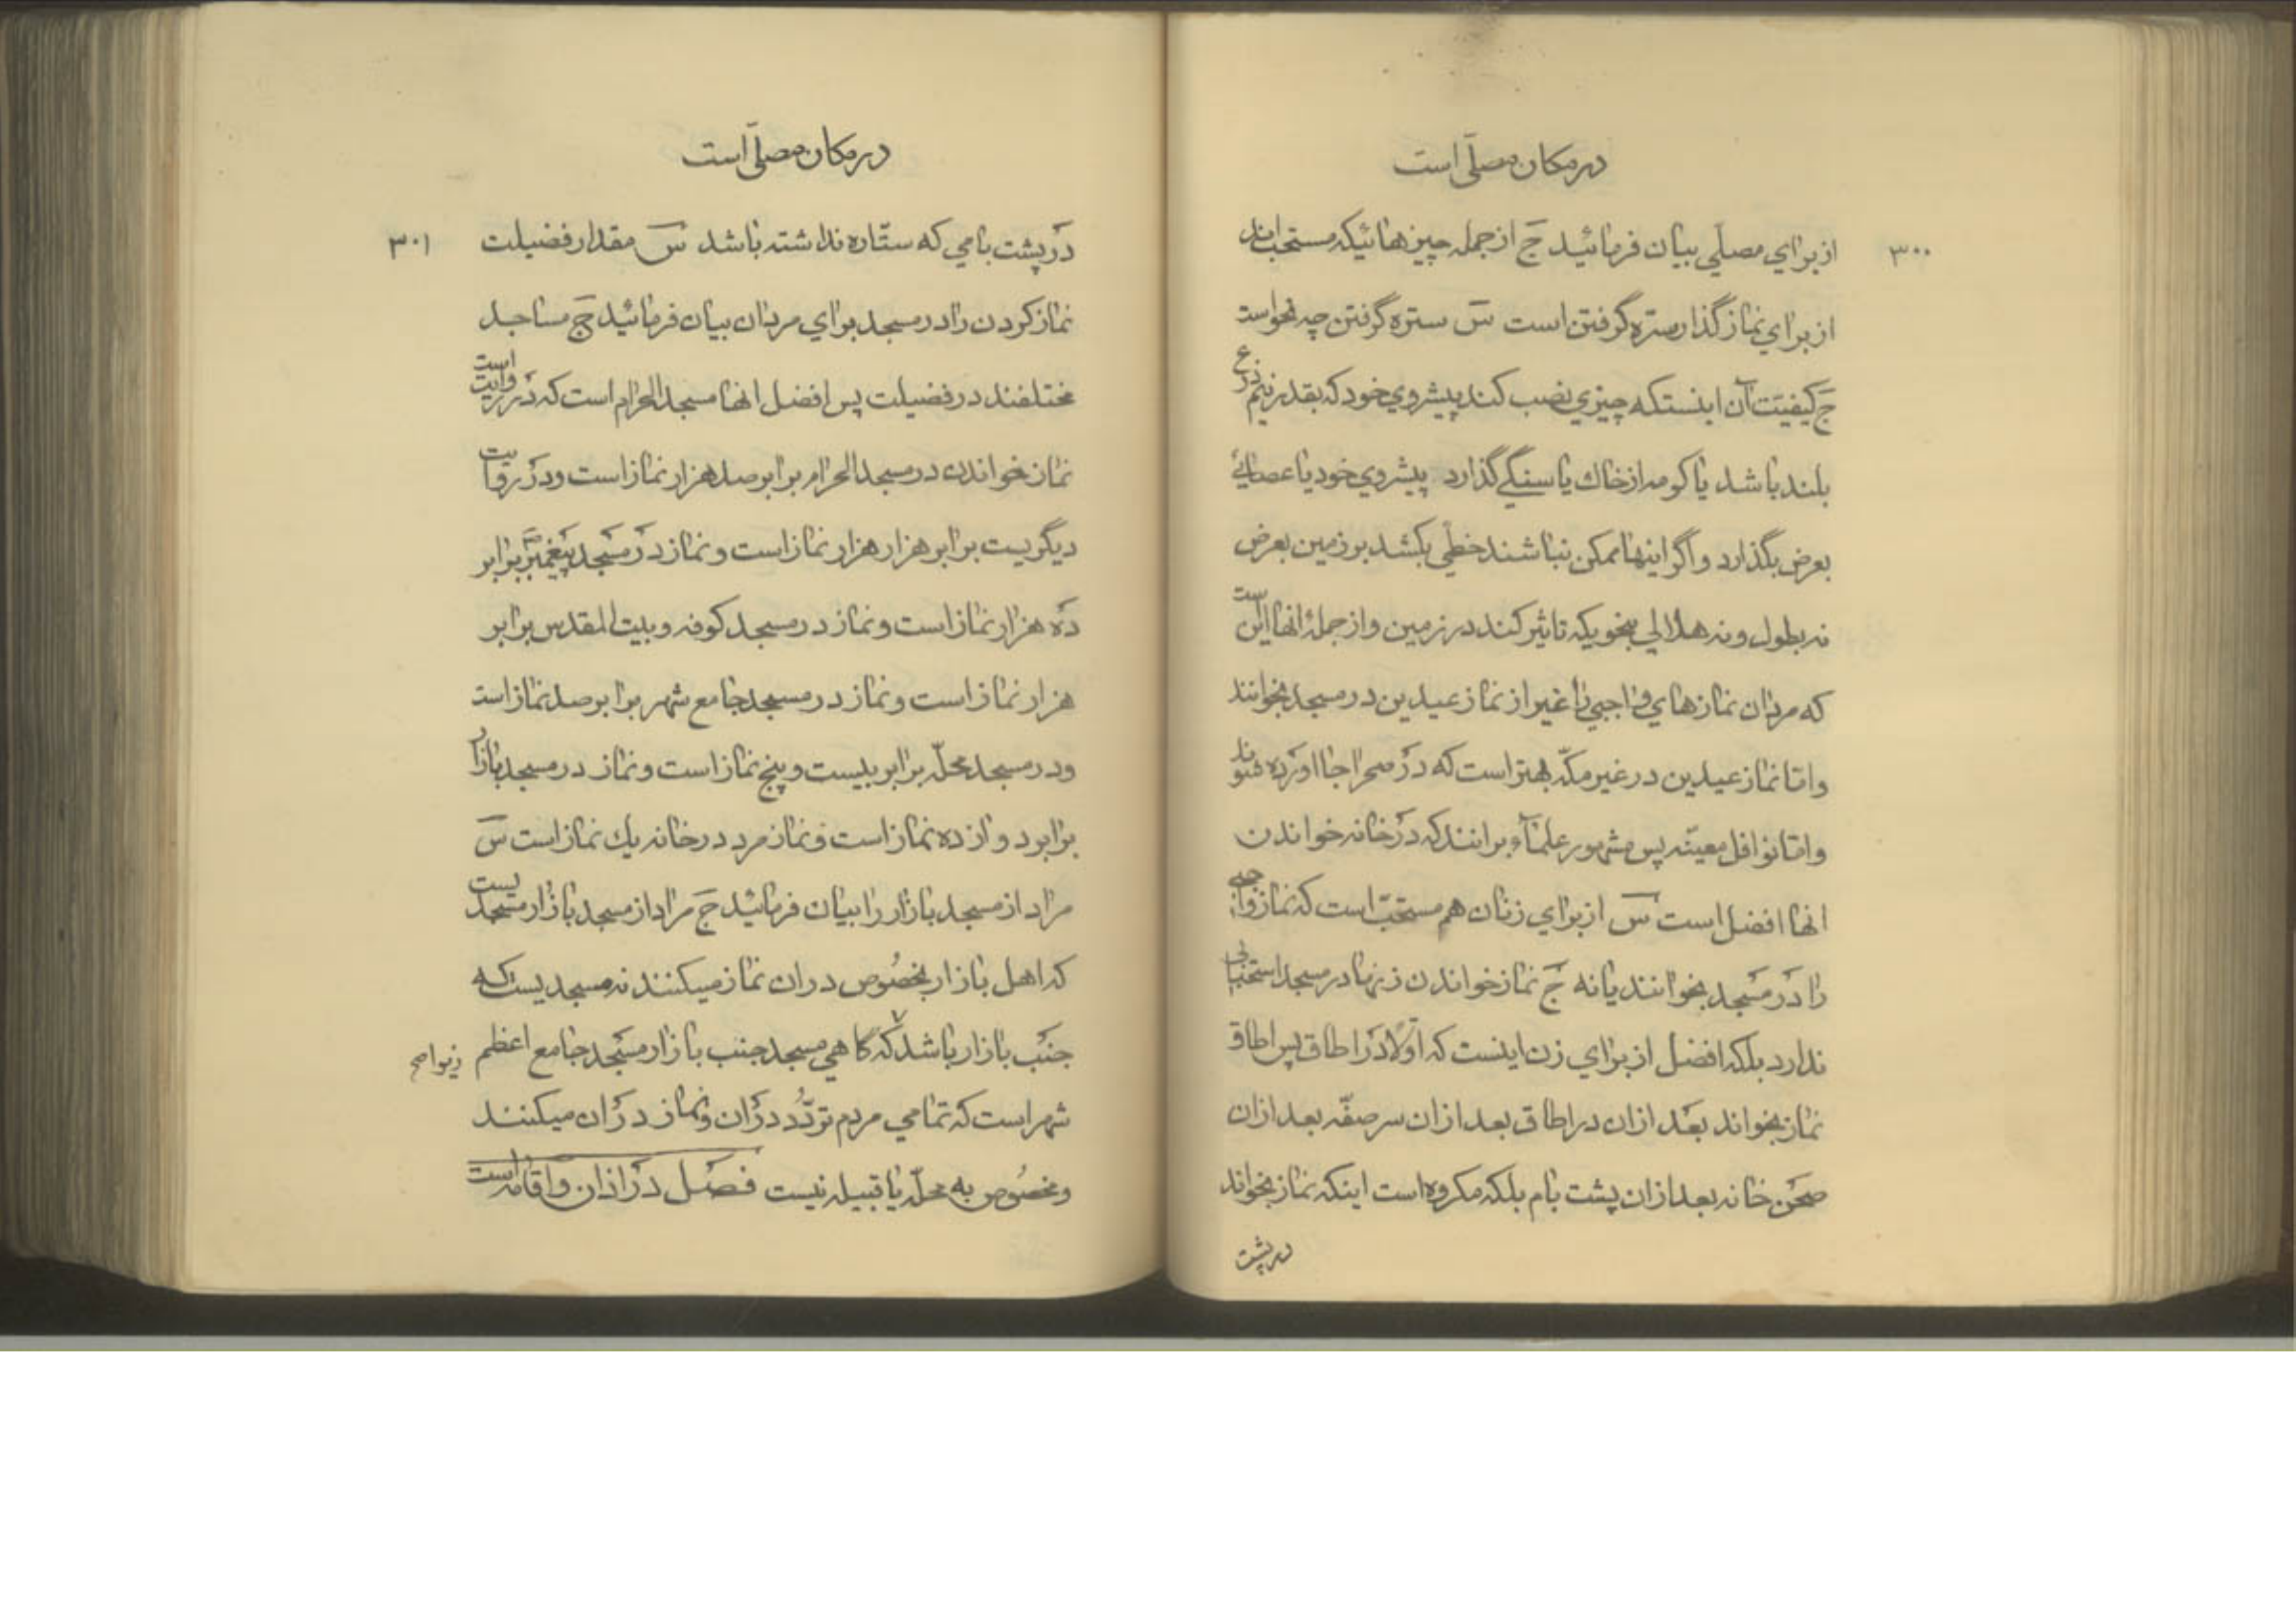 در مکان مصلّی است
۳۰۰
از براي مصلّي بیان فرمائید ج از جمله چیزهائیکه مستحب‌اند
از براي نماز گذار ستره گرفتن است س ستره گرفتن چه نحو است
ج کیفیّت آن اینستکه چیزي نصب کند پیشروي خود که بقدر نیم ذرع
بلند باشد یا کومه از خاك یا سنگي گذارد پیشروي خود یا عصائي
بعرض بگذارد و اگر اینها ممکن نباشند خطّي بکشد بر زمین بعرض
نه بطول و نه هلالي بنحویکه تاثیر کند در زمین و از جملهٔ انها این است
که مردان نمازهاي واجبي را غیر از نماز عیدین در مسجد بخوانند
و امّا نماز عیدین در غیر مکّه بهتر است که در صحرا بجا اورده شوند
و امّا نوافل معیّنه پس مشهور علمآء برانند که در خانه خواندن
انها افضل است س از براي زنان هم مستحبّ است که نماز واجبي
را در مسجد بخوانند یا نه ج نماز خواندن زنها در مسجد استحبابي
ندارد بلکه افضل از براي زن اینست که اوّلا در اطاق پس اطاق
نماز بخواند بعد از ان در اطاق بعد از ان سر صفّه بعد از ان
صحن خانه بعد از ان پشت بام بلکه مکروه است اینکه نماز بخواند
در پشت
در مکان مصلّی است
۳۰۱
در پشت بامي که ستّاره نداشته باشد س مقدار فضیلت
نماز کردن را در مسجد براي مردان بیان فرمائید ج مساجد
مختلفند در فضیلت پس افضل انها مسجد الحرام است که در روایت است
نماز خواندن در مسجد الحرام برابر صد هزار نماز است و در روایت
دیگریست برابر هزار هزار نماز است و نماز در مسجد پیغمبر برابر
ده هزار نماز است و نماز در مسجد کوفه و بیت المقدس برابر
هزار نماز است و نماز در مسجد جامع شهر برابر صد نماز است
و در مسجد محلّه برابر بیست و پنج نماز است و نماز در مسجد بازار
برابر دوازده نماز است و نماز مرد در خانه یك نماز است س
مراد از مسجد بازار را بیان فرمائید ج مراد از مسجد بازار مسجدیست
که اهل بازار بخصُوص در ان نماز میکنند نه مسجدیست که
جنب بازار باشد که گاهي مسجد جنب بازار مسجد جامع اعظم
شهر است که تمامي مردم تردّد در ان و نماز در ان میکنند
و مخصُوص به محلّه یا قبیله نیست فصل در اذان و اقامه است